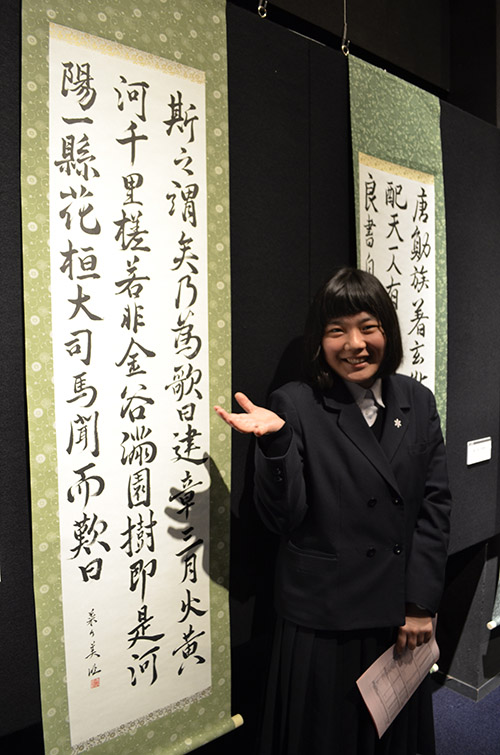 斯之謂矣乃為歌曰建章三月火黄
河千里槎若非金谷滿園樹即是河
陽一縣花桓大司馬聞而歎曰
唐勛族著玄
配天一人有
良書自